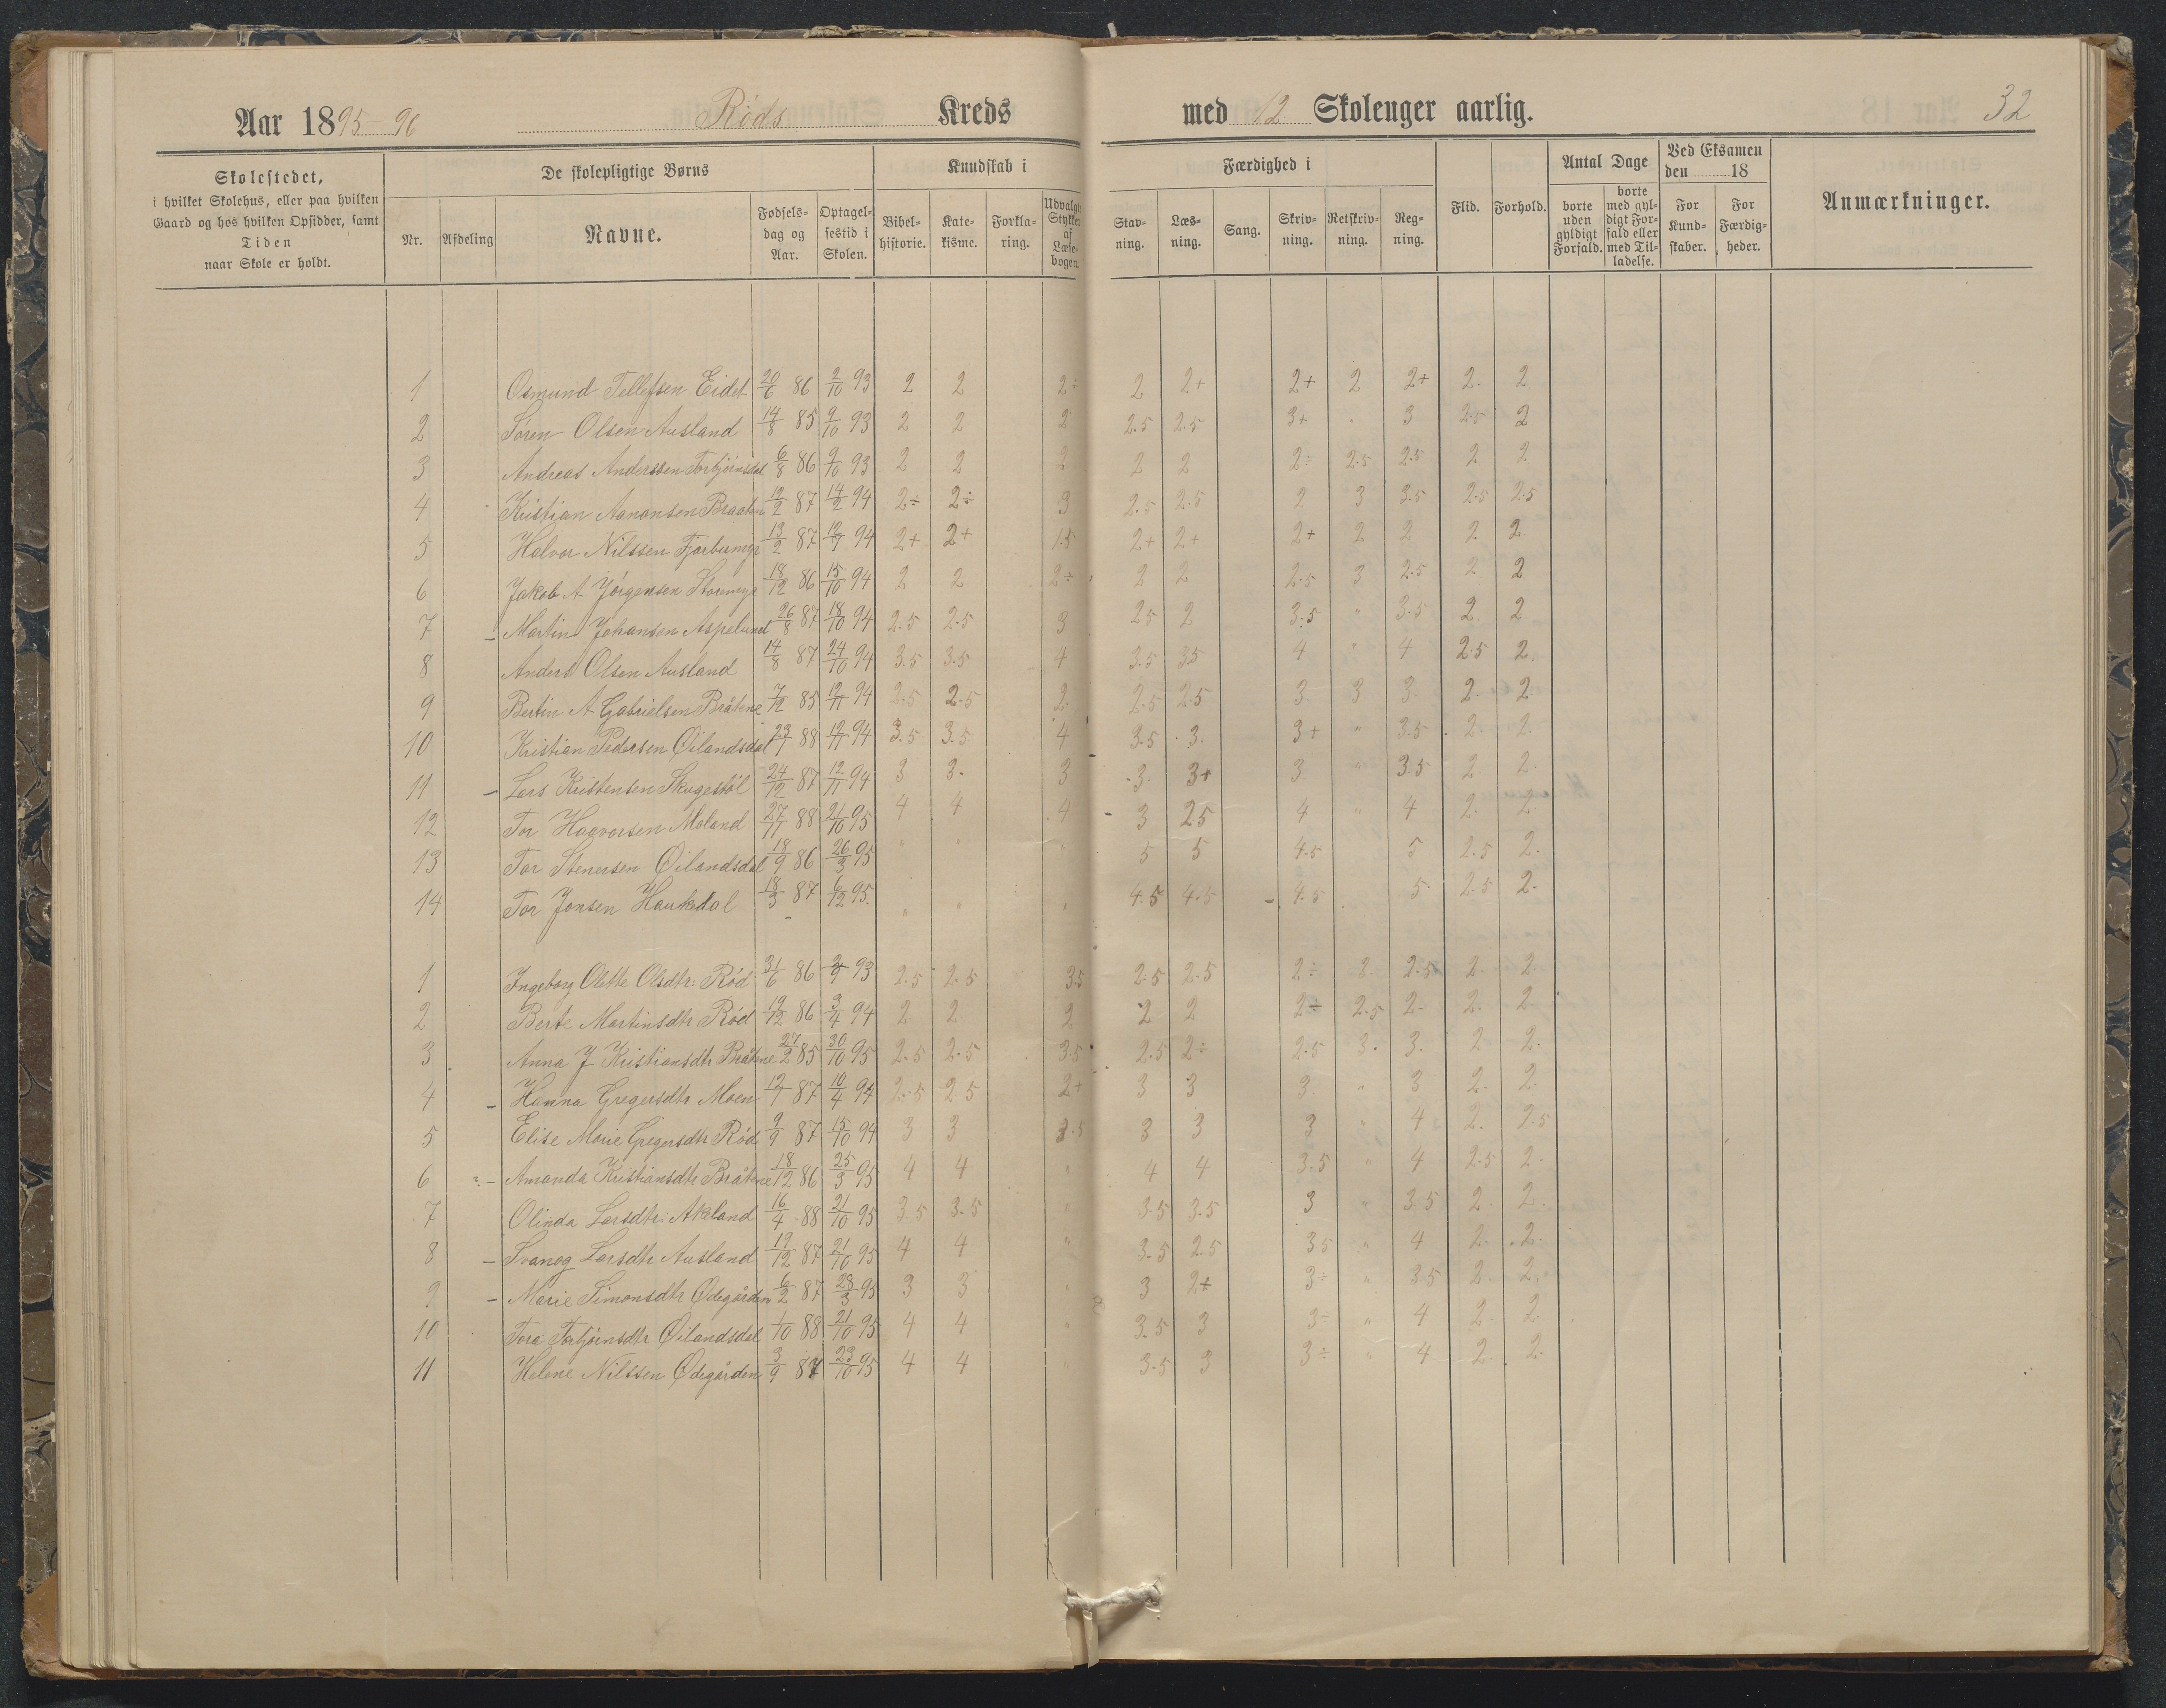 Aar 1895-96 Røds Kreds med 12 Skoleuger aarlig. 32
Skolestedet,
i hvilket Skolehus, eller paa hvilken
Gaard og hos hvilken Opsidder, samt
Tiden
naar Skole er holdt.
De skolepligtige Børns
Nr. Afdeling Navne. Fødselsdag og Aar. Optagelsestid i Skolen.
Kundskab i
Bibelhistorie. Katekisme. Forklaring. Udvalgte Stykker af Læsebogen.
Færdighed i
Stavning. Læsning. Sang. Skrivning. Retskrivning. Regning.
Flid. Forhold.
Antal Dage
borte uden gyldigt Forfald. borte med gyldigt Forfald eller med Tilladelse.
Ved Eksamen den 18
For Kundskaber. For Færdigheder.
Anmærkninger.
1 Osmund Tellefsen Eidet 20/6 86 2/10 93 2 2 2÷ 2 2+ 2+ 2 2+ 2. 2
2 Søren Olsen Ausland 14/8 85 9/10 93 2 2 2 2.5 2.5 3+ . 3 2.5 2
3 Andreas Anderssen Torbjørnsdal 6/8 86 9/10 93 2 2 2 2 2 2÷ 2.5 2.5 2 2
4 Kristian Aanonsen Braaten 12/2 87 14/2 94 2÷ 2÷ 3 2.5 2.5 2 3 3.5 2.5 2.5
5 Halvor Nilssen Fjærbumyr 13/2 87 94 2+ 2+ 1.5 2+ 2+ 2+ 2 2 2. 2
6 Jakob A Jørgensen Storemyr 18/12 86 15/10 94 2 2 2÷ 2 2 2.5 3 2.5 2 2
7 - Martin Johansen Aspelund 26/8 87 18/10 94 2.5 2.5 3 25 2 3.5 " 3.5 2 2
8 Anders Olsen Ausland 14/8 87 24/10 94 3.5 3.5 4 3.5 35 4 " 4 2.5 2.
9 Bertin A Gabrielsen Bråtene 7/12 85 12/11 94 2.5 2.5 2. 2.5 2.5 3. 3 3 2. 2
10 Kristian Pedersen Øilandsdal 23/1 88 12/11 94 3.5 3.5 4 3.5 3. 3+ " 3.5 2. 2.
11 - Lars Kristensen Skugestøl 24/12 87 12/11 94 3 3. 3 3. 3+ 3. " 3.5 2 2.
12 Tor Haavorsen Moland 27/11 88 21/10 95 4 4 4 - 3 25 4 " 4 2. 2.
13 Tor Stenersen Øilandsdal 18/9 86 26/3 95 " " " 5 5 4.5 5 2.5 2.
14 Tor Jonsen Haukdal 18/3 87 6/12 95. " " " 4.5 4.5 - 4.5 5. 2.5 2.
1 Ingeborg Olette Olsdtr. Rød 31/6 86 93 2.5 2.5 3.5 2.5 2.5 2÷ 2. 2.5 2. 2.
2 Berte Martinsdtr Rød 19/12 86 3/4 94 2 2 2 2 2 2÷ 2.5 2. 2. 2.
3 Anna J Kristiansdtr Bråtene 27/2 85 30/10 95 2.5 2.5 3.5 2.5 2÷ 2.5 3. 3. 2 2.
4 - Hanna Gregersdtr Moen 12/7 87 10/4 94 2.5 2 5 2+ 3 3 3 " 3 2. 2.
5 Elise Marie Gregersdtr Rød 9/9 87 15/10 94 3 3 3.5 3 3 3 " 4 2. 2.5
6 - Amanda Kristiansdtr Bråtene 18/12 86 25/3 95 4 4 " 4 4 3.5 " 4 2.5 2.
7 Olinda Larsdtr. Akeland 16/4 88 21/10 95 3 5 3.5 " 3.5 3.5 3 " 3.5 2. 2.
8 - Svanog Larsdtr Ausland 19/12 87 21/10 95 4 4 " 3.5 2.5 35 " 4 2. 2.
9 - Marie Simonsdtr Ødegården 6/2 87 28/3 95 3 3 " 3 2+ 3÷ " 3.5 2. 2.
10 Tora Torbjørnsdtr Øilandsdal 1/10 88 21/10 95 4 4 " 3.5 3 3÷ " 4 2 2.
11 Helene Nilssen Ødegården 3/9 87 23/10 95 4 4 3.5 3 3÷ " 4 2. 2.